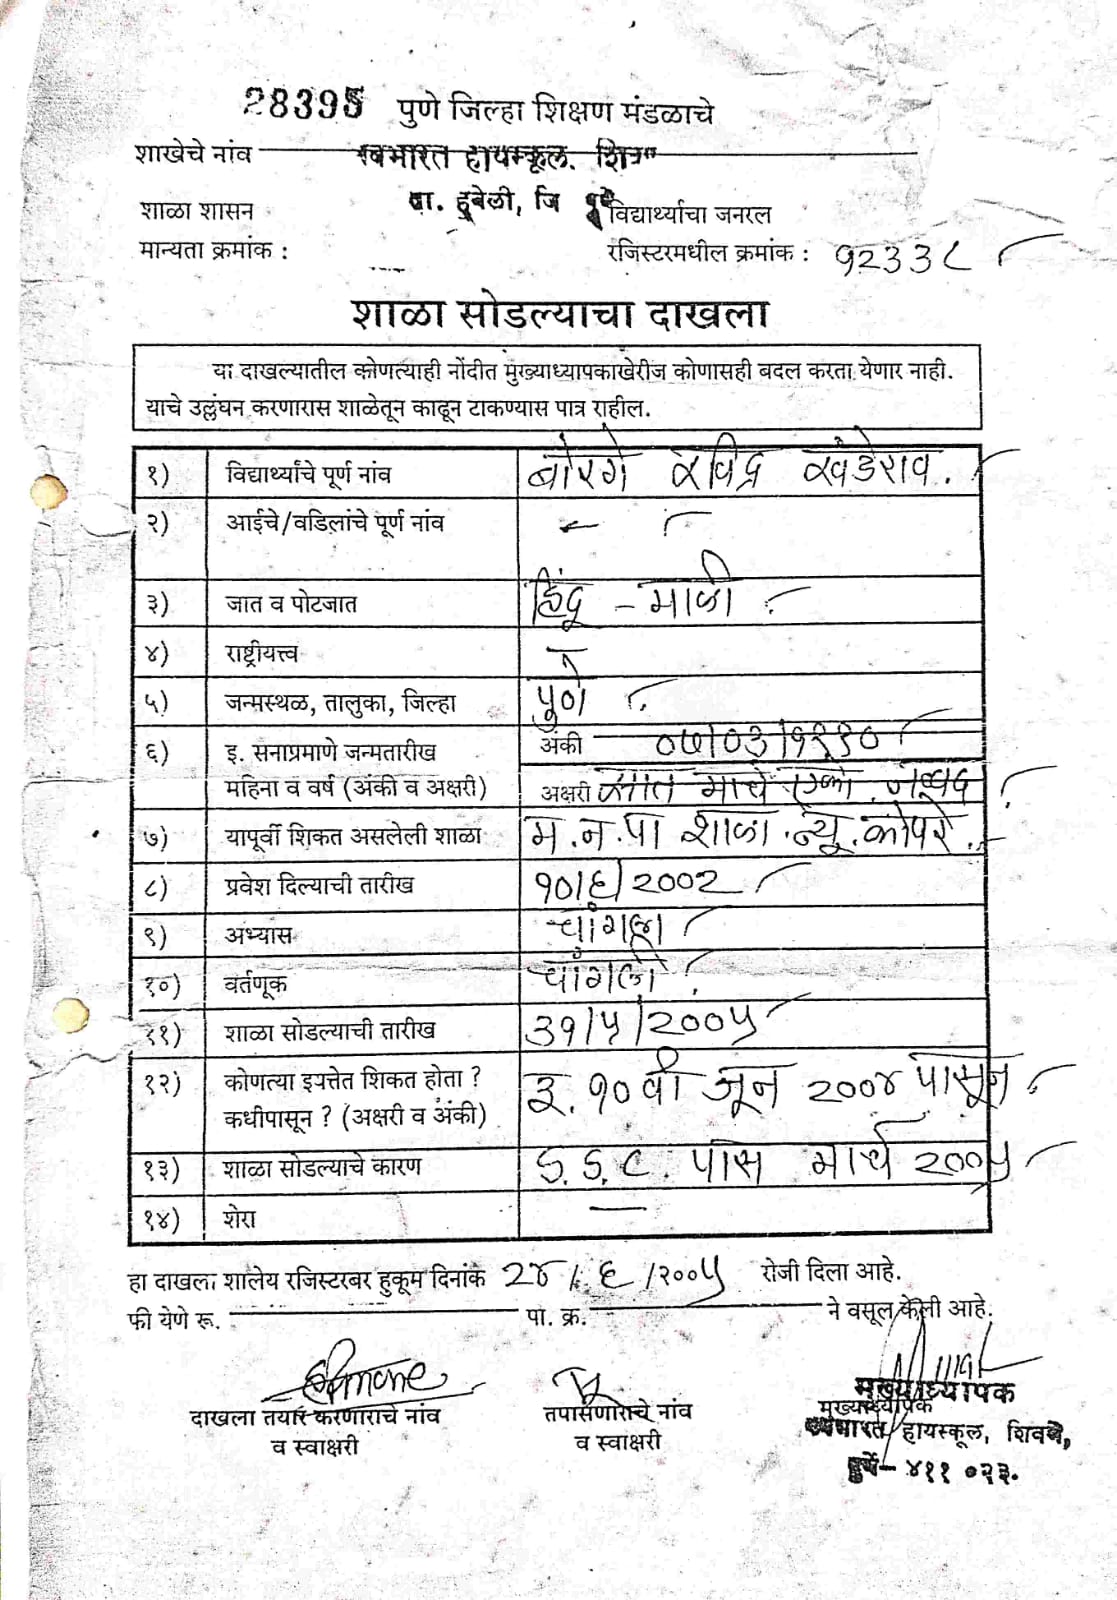 28395 पुणे जिल्हा शिक्षण मंडळाचे
शाखेचे नांव नवभारत हायस्कूल. शिवणे
ता. हवेली, जि पुणे
शाळा शासन
मान्यता क्रमांक :
विद्यार्थ्याचा जनरल
रजिस्टरमधील क्रमांक : १२३३८
शाळा सोडल्याचा दाखला
या दाखल्यातील कोणत्याही नोंदीत मुख्याध्यापकाखेरीज कोणासही बदल करता येणार नाही.
याचे उल्लंघन करणारास शाळेतून काढून टाकण्यास पात्र राहील.
१) विद्यार्थ्यांचे पूर्ण नांव बोरगे रविंद्र खंडेराव.
२) आईचे/वडिलांचे पूर्ण नांव –
३) जात व पोटजात हिंदू – माळी
४) राष्ट्रीयत्त्व –
५) जन्मस्थळ, तालुका, जिल्हा पुणे
६) इ. सनाप्रमाणे जन्मतारीख अंकी ०७/०३/१९९०
महिना व वर्ष (अंकी व अक्षरी) अक्षरी सात मार्च एको. नव्वद
७) यापूर्वी शिकत असलेली शाळा म.न.पा शाळा.न्यू.कोपरे.
८) प्रवेश दिल्याची तारीख १०/६/२००२
९) अभ्यास चांगला
१०) वर्तणूक चांगली
११) शाळा सोडल्याची तारीख ३१/५/२००५
१२) कोणत्या इयत्तेत शिकत होता ? इ. १० वी जून २००४ पासून
कधीपासून ? (अक्षरी व अंकी)
१३) शाळा सोडल्याचे कारण S.S.C. पास मार्च २००५
१४) शेरा —
हा दाखला शालेय रजिस्टरबर हुकूम दिनांक २४/६/२००५ रोजी दिला आहे.
फी येणे रू. पा. क्र. ने वसूल केली आहे.
दाखला तयार करणाराचे नांव
व स्वाक्षरी
तपासणाराचे नांव
व स्वाक्षरी
मुख्याध्यापक
मुख्याध्यापक
नवभारत हायस्कूल, शिवणे,
पुणे– ४११ ०२३.